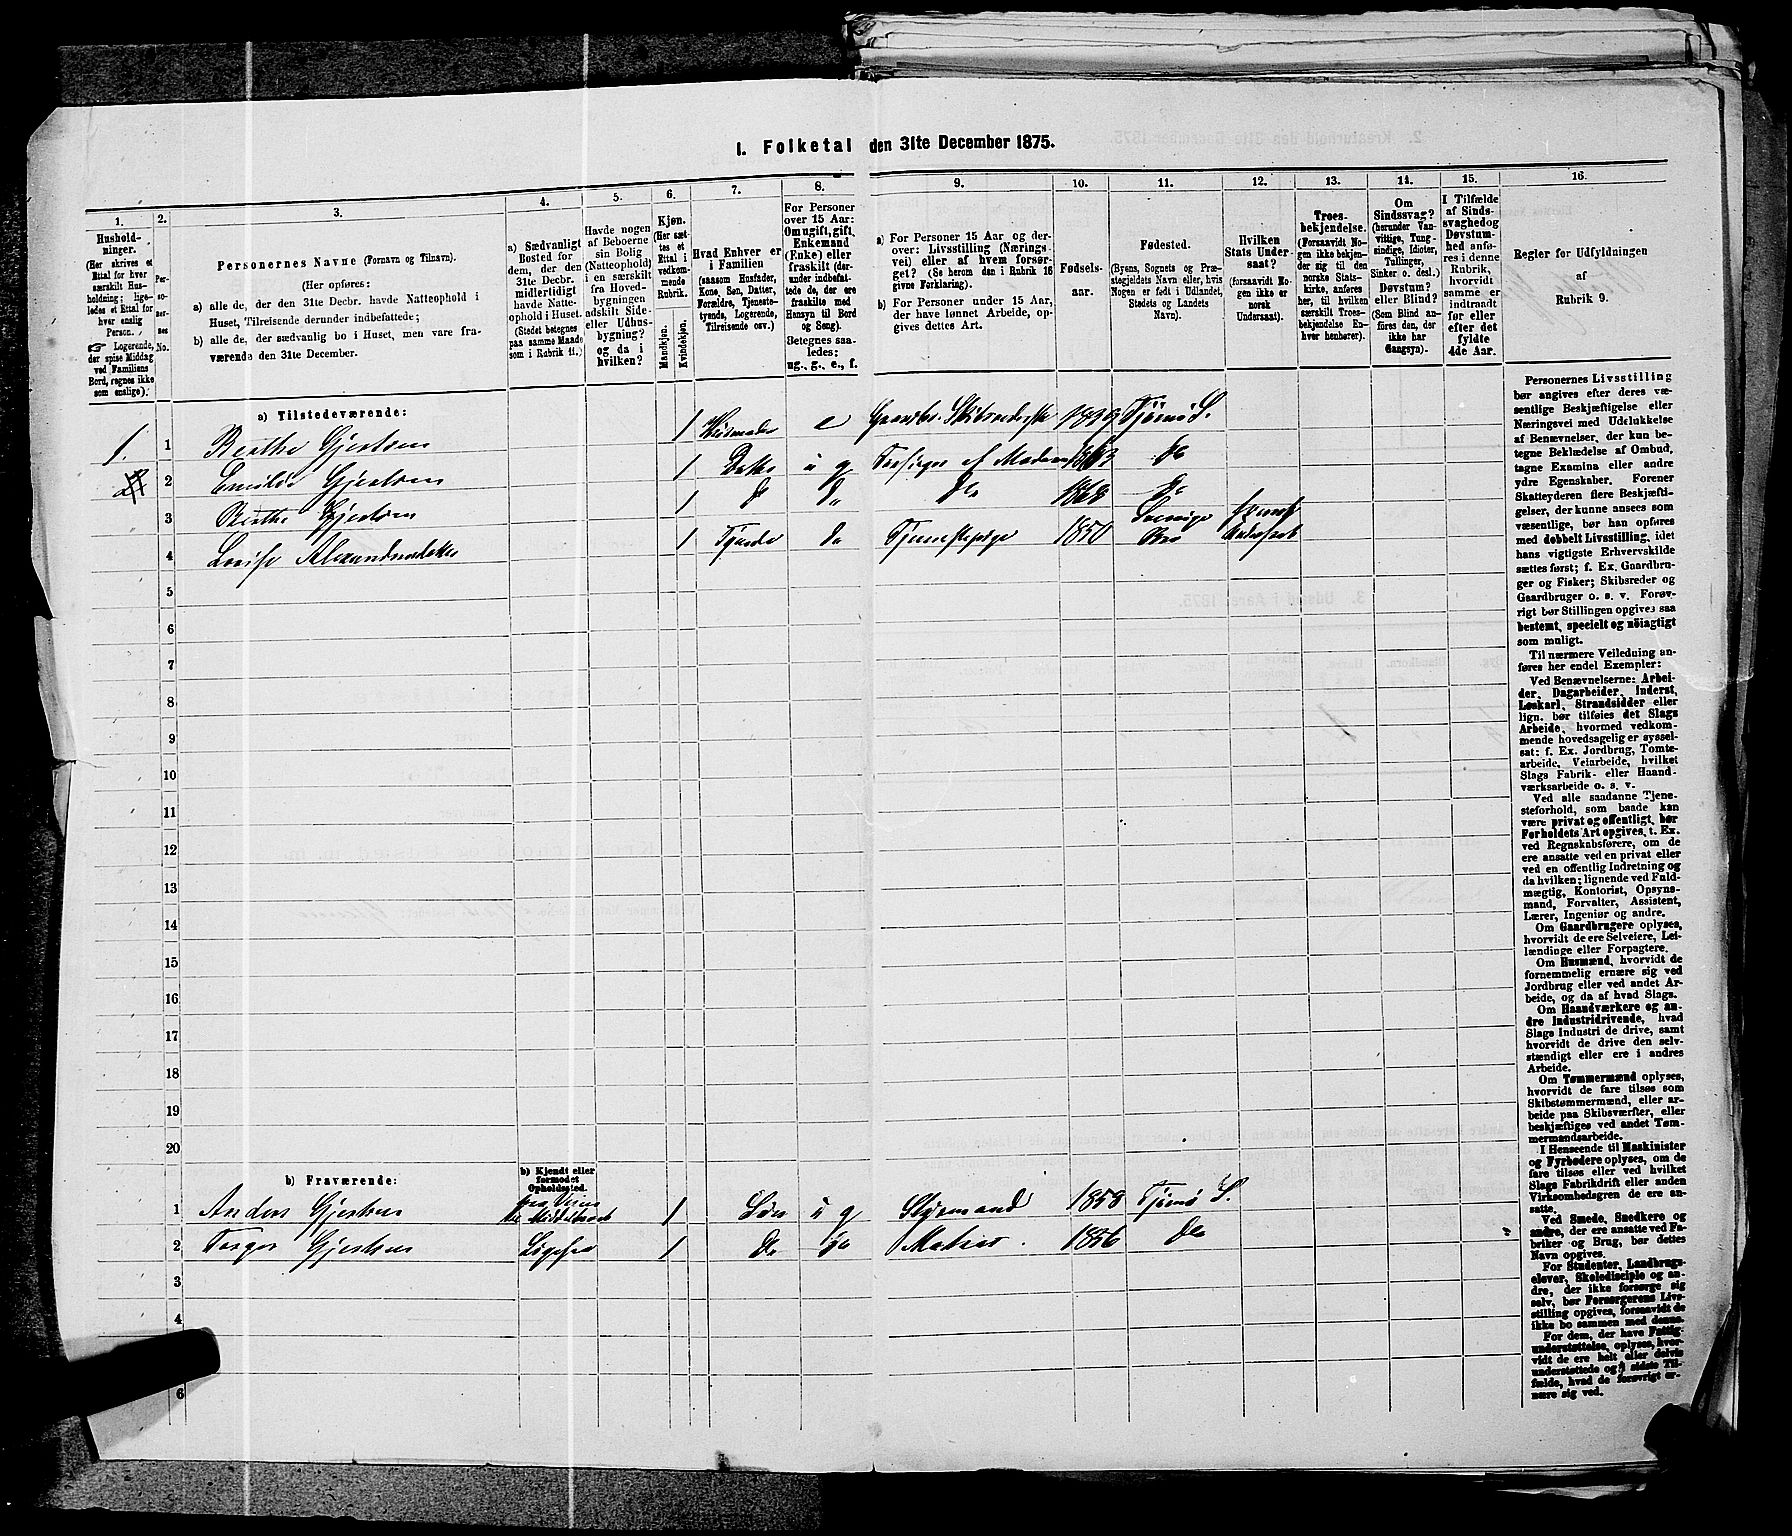 1. Folketal den 31te December 1875.
1.
Hushold-
ninger.
(Her skrives et
Ettal for hver
særskilt Hus-
holdning; lige-
ledes et Ettal for
hver enslig
Person.
☞ Logerende,
der spise Middag
ved Familiens
Bord, regnes ikke
som enslige).
2.
Per-
so-
ner-
nes
No.
3.
Personernes Navne (Fornavn og Tilnavn).
(Her opføres:
a) alle de, der den 31te Decbr. havde Natteophold i
Huset, Tilreisende derunder indbefattede;
b) alle de, der sædvanlig bo i Huset, men vare fra-
værende den 31te December.
4.
a) Sædvanligt
Bosted for
dem, der den
31te Decbr.
midlertidigt
havde Natte-
ophold i Huset.
(Stedet betegnes
paa samme Maade
som i Rubrik 11.)
5.
Havde nogen
af Beboerne
sin Bolig
(Natteophold)
i en særskilt
fra Hoved-
bygningen
adskilt Side-
eller Udhus-
bygning?
og da i
hvilken?
6.
Kjøn.
(Her sæt-
tes et
Ettal i
vedkom-
mende
Rubrik.
Mandkjøn.
Kvindekjøn.
7.
Hvad Enhver er
i Familien
(saasom Husfader,
Kone, Søn, Datter,
Forældre, Tjeneste-
tyende, Logerende,
Tilreisende osv.)
8.
For Personer
over 15 Aar:
Om ugift, gift,
Enkemand
(Enke) eller
fraskilt (der-
under indbefat-
tede de, der ere
fraskilte med
Hensyn til Bord
og Seng).
Betegnes saa-
ledes:
ug., g., e., f.
9.
a) For Personer 15 Aar og der-
over: Livsstilling (Nærings-
vei) eller af hvem forsør-
get? (Se herom den i Rubrik 16
givne Forklaring).
b) For Personer under 15 Aar,
der have lønnet Arbeide, op-
gives dettes Art.
10.
Fødsels-
aar.
11.
Fødested.
(Byens, Sognets og Præ-
stegjeldets Navn eller, hvis
Nogen er født i Udlandet,
Stedets og Landets
Navn).
12.
Hvilken
Stats Under-
saat?
(forsaavidt No-
gen ikke er
norsk
Undersaat).
13.
Troes-
bekjendelse.
(Forsaavidt No-
gen ikke bekjen-
der sig til den
norske Stats-
kirke, anføres
her, til hvilken
særskilt Troes-
bekjendelse En-
hver henhører).
14.
Om
Sindssvag?
(herunder Van-
vittige, Tung-
sindige, Idioter,
Tullinger,
Sinker o. desl.)
Døvstum?
eller Blind?
(Som Blind an-
føres den, der
ikke har
Gangsyn).
15.
I Tilfælde
af Sinds-
svaghed og
Døvstum-
hed anfø-
res i denne
Rubrik,
hvorvidt
samme er
indtraadt
før eller
efter det
fyldte
4de Aar.
16.
Regler for Udfyldningen
af
Rubrik 9.
a) Tilstedeværende:
1. 1 Berthe Gjertsen 1 Husmoder e Gaardbr. 1839 Tjømø S.
2 Emilie Gjertsen 1 Datter ug Forsørges af Moderen 1863 do
3 Berthe Gjertsen 1 do do do 1868 do
4 Lovise Alexandersdatter 1 Tjende do Tjenestepige 1850 Sverige
5
6
7
8
9
10
11
12
13
14
15
16
17
18
19
20
b) Fraværende:
b) Kjendt eller
formodet
Opholdssted.
1 Anders Gjertsen 1 Søn ug Styrmand 1858 Tjømø S.
2 Gjertsen Ligesaa 1 do do Matros. 1856 do
3
4
6
Personernes Livsstilling
bør angives efter deres væ-
sentlige Beskjæftigelse eller
Næringsvei med Udelukkelse
af Benævnelser, der kun be-
tegne Beklædelse af Ombud,
tagne Examina eller andre
ydre Egenskaber. Forener
Skatteyderen flere Beskjæfti-
gelser, der kunne ansees som
væsentlige, bør han opføres
med dobbelt Livsstilling, idet
hans vigtigste Erhvervskilde
sættes først; f. Ex. Gaardbru-
ger og Fisker; Skibsreder og
Gaardbruger o. s. v. Forøv-
rigt bør Stillingen opgives saa
bestemt, specielt og nöiagtigt
som muligt.
Til nærmere Veiledning an-
føres her endel Exempler:
Ved Benævnelserne: Arbei-
der, Dagarbeider, Inderst,
Løskarl, Strandsidder eller
lign. bør tilføies det Slags
Arbeide, hvormed vedkom-
mende hovedsagelig er syssel-
sat: f. Ex. Jordbrug, Tomte-
arbeide, Veiarbeide, hvilket
Slags Fabrik- eller Haand-
værksarbeide o. s. v.
Ved alle saadanne Tjene-
steforhold, som baade kan
være privat og offentligt, bør
Forholdets Art opgives, t. Ex.
ved Regnskabsførere, om de
ere ansatte ved en privat eller
ved en offentlig Indretning og
da hvilken; lignende ved Fuld-
mægtig, Kontorist, Opsyns-
mand, Forvalter, Assistent,
Lærer, Ingeniør og andre.
Om Gaardbrugere oplyses,
hvorvidt de ere Selveiere, Lei-
lændinge eller Forpagtere.
Om Husmænd, hvorvidt de
fornemmelig ernære sig ved
Jordbrug eller ved andet Ar-
beide, og da af hvad Slags.
Om Haandværkere og an-
dre Industridrivende, hvad
Slags Industri de drive, samt
hvorvidt de drive den selv-
stændigt eller ere i andres
Arbeide.
Om Tømmermænd oplyses,
hvorvidt de fare tilsøs som
Skibstømmermænd, eller ar-
beide paa Skibsværfter, eller
beskjæftiges ved andet Tøm-
mermandsarbeide.
I Henseende til Maskinister
og Fyrbødere oplyses, om de
fare tilsøs eller ved hvilket
Slags Fabrikdrift eller anden
Virksomhedsgren de ere an-
satte.
Ved Smede, Snedkere og
andre, der ere ansatte ved Fa-
briker og Brug, bør dettes
Navn opgives.
For Studenter, Landbrugs-
elever, Skoledisciple og an-
dre, der ikke forsørge sig
selv, bør Forsørgerens Livs-
stilling opgives, forsaavidt de
ikke bo sammen med denne.
For dem, der have Fattig-
understøttelse, oplyses, hvor-
vidt de ere helt eller delvis
understøttede og i sidste Til-
fælde, hvad de forøvrigt er-
nære sig ved.